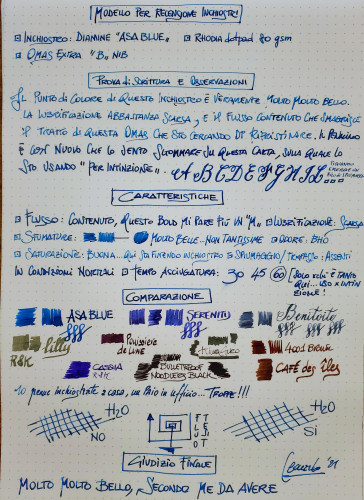 MODELLO PER RECENSIONE INCHIOSTRI
INCHIOSTRO: DIAMINE "ASA BLUE" RHODIA dotpad 80 gsm
OMAS EXTRA "B" NIB
PROVA DI SCRITTURA E OSSERVAZIONI
IL PUNTO DI COLORE DI QUESTO INCHIOSTRO È VERAMENTE MOLTO MOLTO BELLO.
LA LUBRIFICAZIONE ABBASTANZA SCARSA, E IL FLUSSO CONTENUTO CHE
IL TRATTO DI QUESTA OMAS CHE STO CERCANDO DI RIPRISTINARE. IL
È COSÌ NUOVO CHE LO SENTO SU QUESTA CARTA, SULLA QUALE LO
STO USANDO "PER INTINZIONE".
A B C D E F G H I L
CARATTERISTICHE
FLUSSO: CONTENUTO, QUESTO BOLD MI PARE PIÙ UN "M" LUBRIFICAZIONE: SCARSA
SFUMATURE: MOLTO BELLE... NON TANTISSIME ODORE: BHO
SATURAZIONE: BUONA... QUI STO FINENDO INCHIOSTRO SPIUMAGGIO/TRAPASSO: ASSENTI
IN CONDIZIONI NORMALI TEMPO ASCIUGATURA: 30 45 60 [SOLO xchè È TANTO
QUI... USO x INTIN
ZIONE!
COMPARAZIONE
ASA BLUE SERENITY Benitoite
R&K Lilly Poussière de Lune Kiwa-guro 4001 BRUN
CASSIA R&K BULLETPROOF NOODLER'S BLACK CAFÉ des Îles
10 penne inchiostrate a casa, un paio in ufficio... TROPPE!!!
H2O
NO
FLUO
TEST
H2O
SÌ
GIUDIZIO FINALE
'21
MOLTO MOLTO BELLO, SECONDO ME DA AVERE